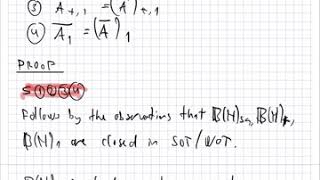 ③ A₊,₁ = (Ā)₊,₁
④ Ā₁ = (Ā)₁
PROOF
S ① ② ③ ④
Follows by the observations that B(H)sa, B(H)₊,
B(H)₁ are closed in SOT/WOT.